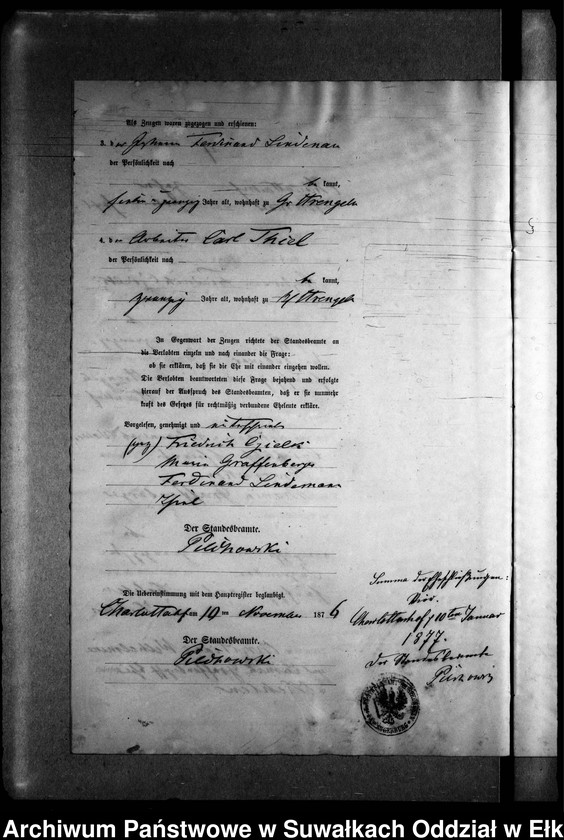 Als Zeugen waren zugezogen und erschienen:
3. der Johann Ferdinand Lindenau
der Persönlichkeit nach
be kannt,
Jahre alt, wohnhaft zu Gr Strengeln
4. der Arbeiter Carl Thiel
der Persönlichkeit nach
be kannt,
zwanzig Jahre alt, wohnhaft zu Kl Strengeln
In Gegenwart der Zeugen richtete der Standesbeamte an
die Verlobten einzeln und nach einander die Frage:
ob sie erklären, daß sie die Ehe mit einander eingehen wollen.
Die Verlobten beantworteten diese Frage bejahend und erfolgte
hierauf der Ausspruch des Standesbeamten, daß er sie nunmehr
kraft des Gesetzes für rechtmäßig verbundene Eheleute erkläre.
Vorgelesen, genehmigt und unterschrieben
(gez) Friedrich
Maria Graffenberger
Ferdinand Lindemann
Thiel
Der Standesbeamte.
Die Uebereinstimmung mit dem Hauptregister beglaubigt.
Charlottenhof am 19 ten November 1876
Der Standesbeamte.
Summa der Eheschließungen:
Vier.
Charlottenhof, 10ten Januar
1877.
Der Standesbeamte
Archiwum Państwowe w Suwałkach Oddział w Ełk